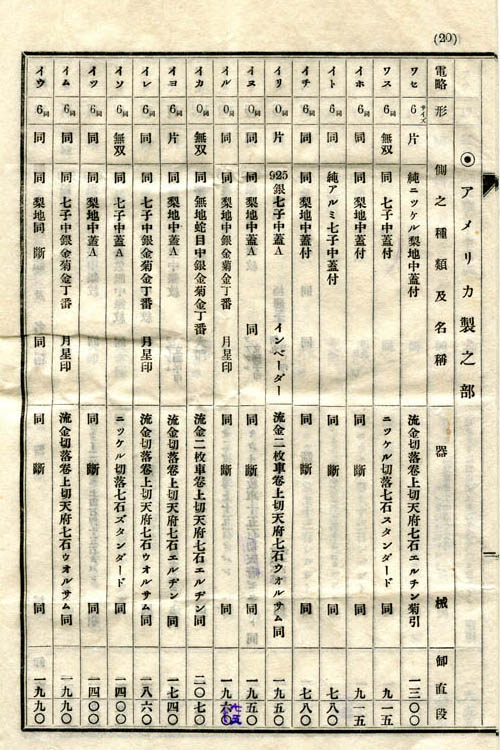 (20)
◉アメリカ製之部
電略 形 側之種類及名稱 器械 卸直段
ワセ 6サイズ 片 純ニッケル梨地中蓋付 流金切落卷上切天府七石エルヂン菊引 一三〇〇
ワス 6同 無双 同 七子中蓋付 ニッケル切落七石スタンダード 同 九一五
イホ 6同 同 同 梨地中蓋付 同 斷 同 九一五
イト 6同 同 純アルミ七子中蓋付 同 斷 同 七八〇
イチ 6同 同 同 梨地中蓋付 同 斷 同 七八〇
イリ 0同 片 925銀七子中蓋A インベーダー 流金二枚車卷上切天府七石ウォルサム同 一九五〇
イヌ 0同 同 同 梨地中蓋A 同 同 斷 同 一九五〇
イル 0同 同 同 梨地中銀金菊金丁番 月星印 同 斷 同 一九
イカ 0同 無双 同 無地蛇目中銀金菊金丁番 流金二枚車卷上切天府七石エルヂン同 二〇七〇
イヨ 6同 片 同 梨地中蓋A 流金切落卷上切天府七石エルヂン同 一七四〇
イレ 6同 同 同 七子中銀金菊金丁番 月星印 流金切落卷上切天府七石ウォルサム同 一八六〇
イソ 6同 無双 同 七子中蓋A ニッケル切落七石スタンダード 同 一四〇〇
イツ 6同 同 同 梨地中蓋A 同 斷 同 一四〇〇
イム 6同 同 同 七子中銀金菊金丁番 月星印 流金切落卷上切天府七石ウォルサム同 一九九〇
イウ 6同 同 同 梨地同 斷 同 同 斷 同 一九九〇